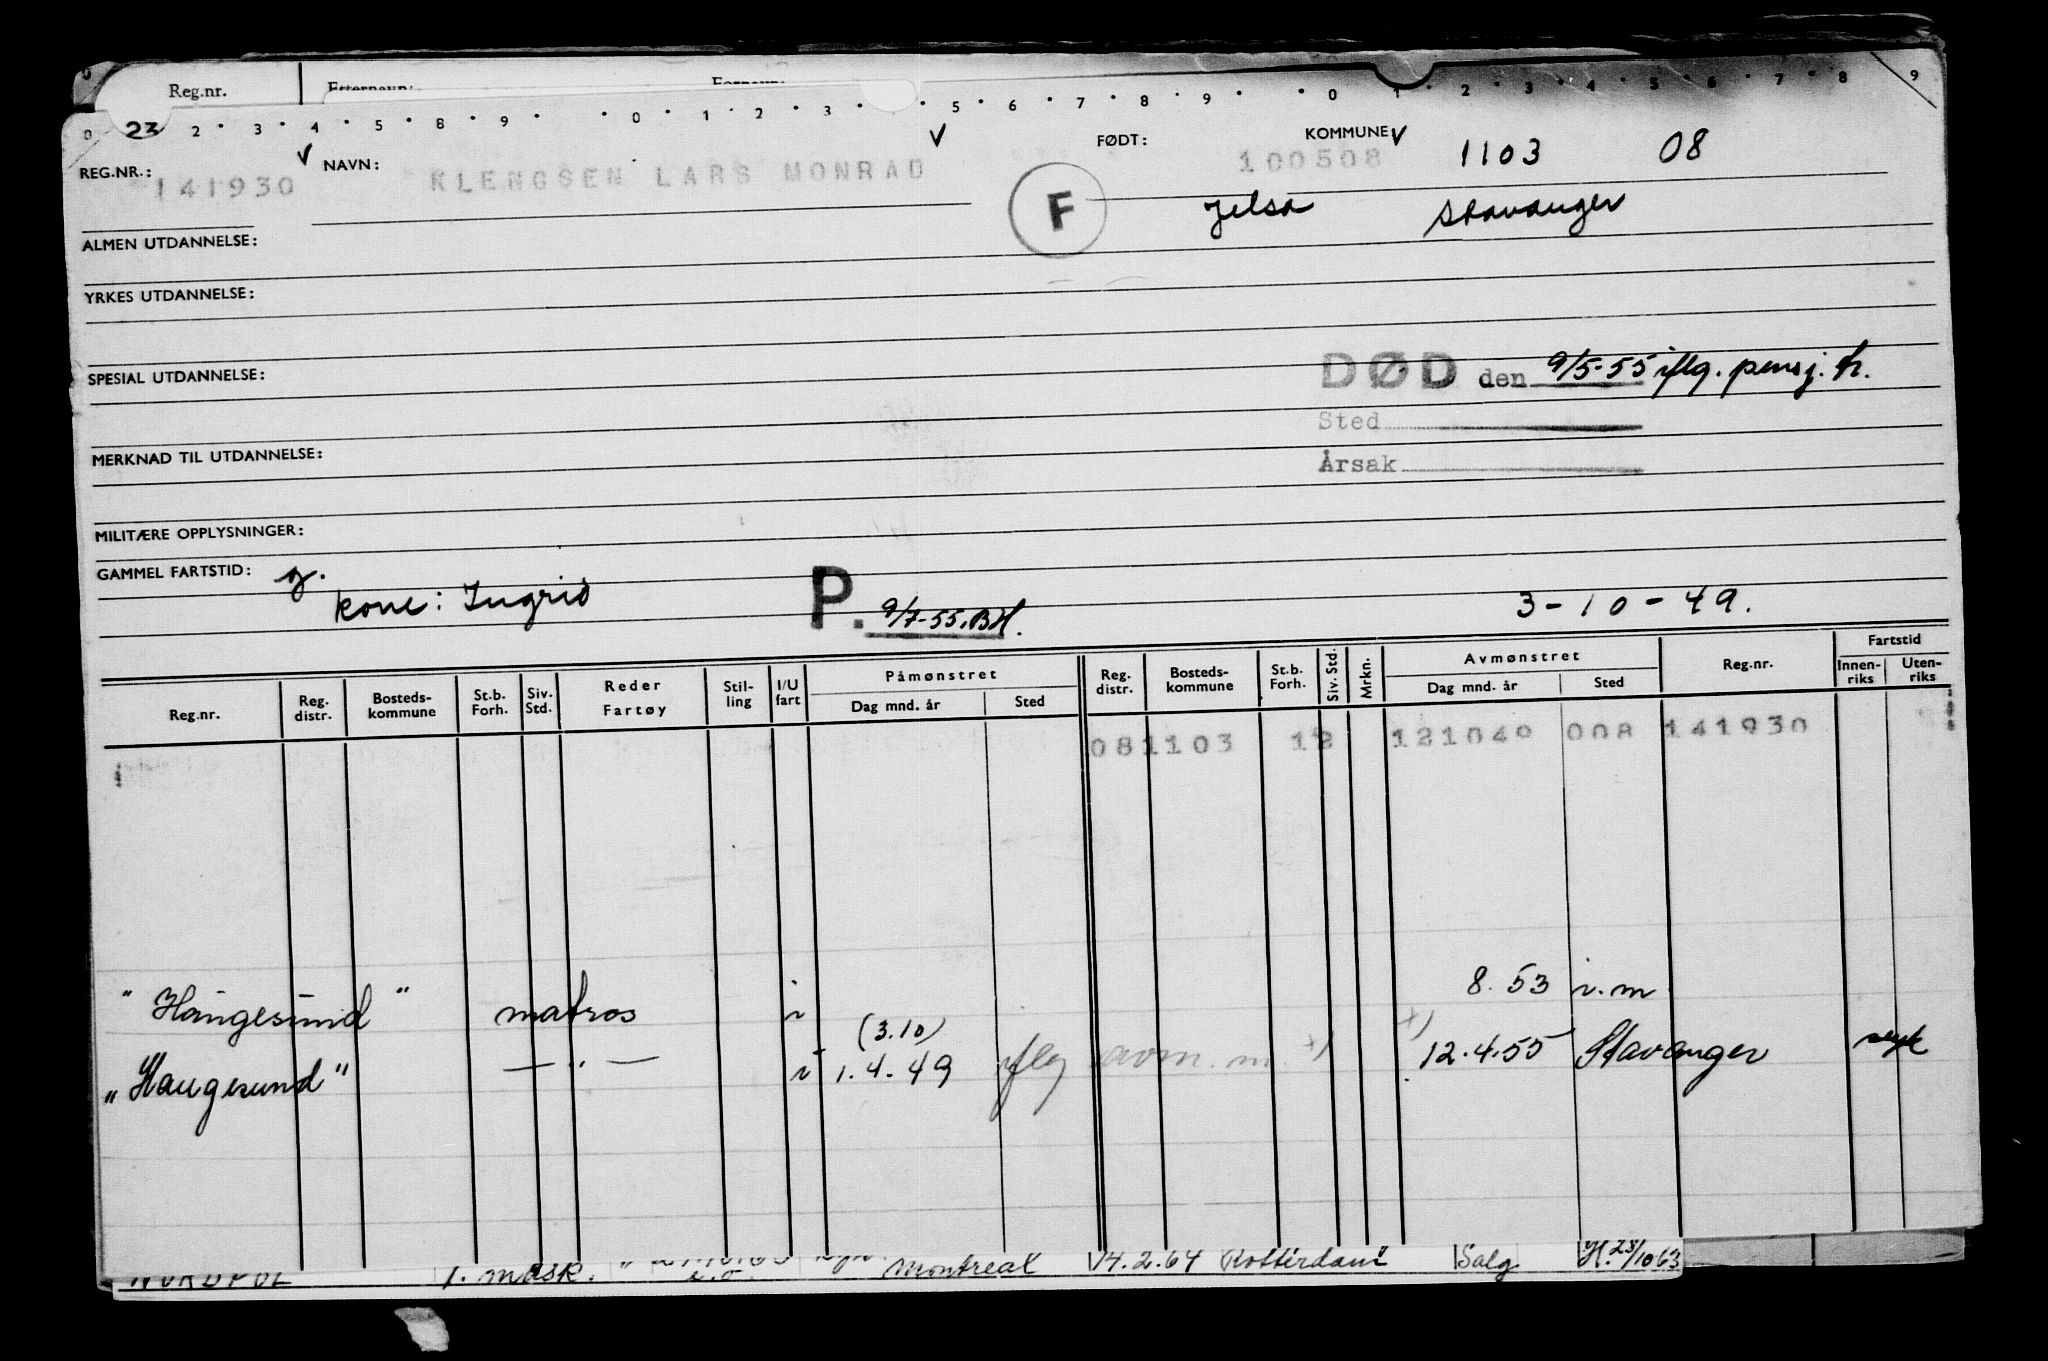 Reg.nr.
0 23 2 3 4 5 8 9 0 1 2 3 5 6 7 8 9 0 1 2 3 4 5 6 7 8 9
REG.NR.: 141930 NAVN: KLENGSEN LARS MONRAD FØDT: 100508 KOMMUNE 1103 08
F Jelsa Stavanger
ALMEN UTDANNELSE:
YRKES UTDANNELSE:
SPESIAL UTDANNELSE:
DØD den 9/5-55 iflg. pensj. tr.
Sted
Årsak
MERKNAD TIL UTDANNELSE:
MILITÆRE OPPLYSNINGER:
GAMMEL FARTSTID: g.
kone: Ingrid P. 9/7-55.BH. 3-10-49.
Reg.nr. Reg. distr. Bosteds-kommune St.b. Forh. Siv. Std. Reder Fartøy Stil-ling I/U fart Påmønstret Dag mnd. år Sted Reg. distr. Bosteds-kommune St.b. Forh. Siv. Std. Mrkn. Avmønstret Dag mnd. år Sted Reg.nr. Fartstid Innen-riks Uten-riks
081103 12 121049 008 141930
"Haugesund" matros i 8.53 i.m
(3.10) x)
"Haugesund" — " — i 1.4.49 iflg avm. m. x) 12.4.55 Stavanger syk
NORDPOL 1. mask. Montreal 14.2.64 Rotterdam Salg H. 28/10 63